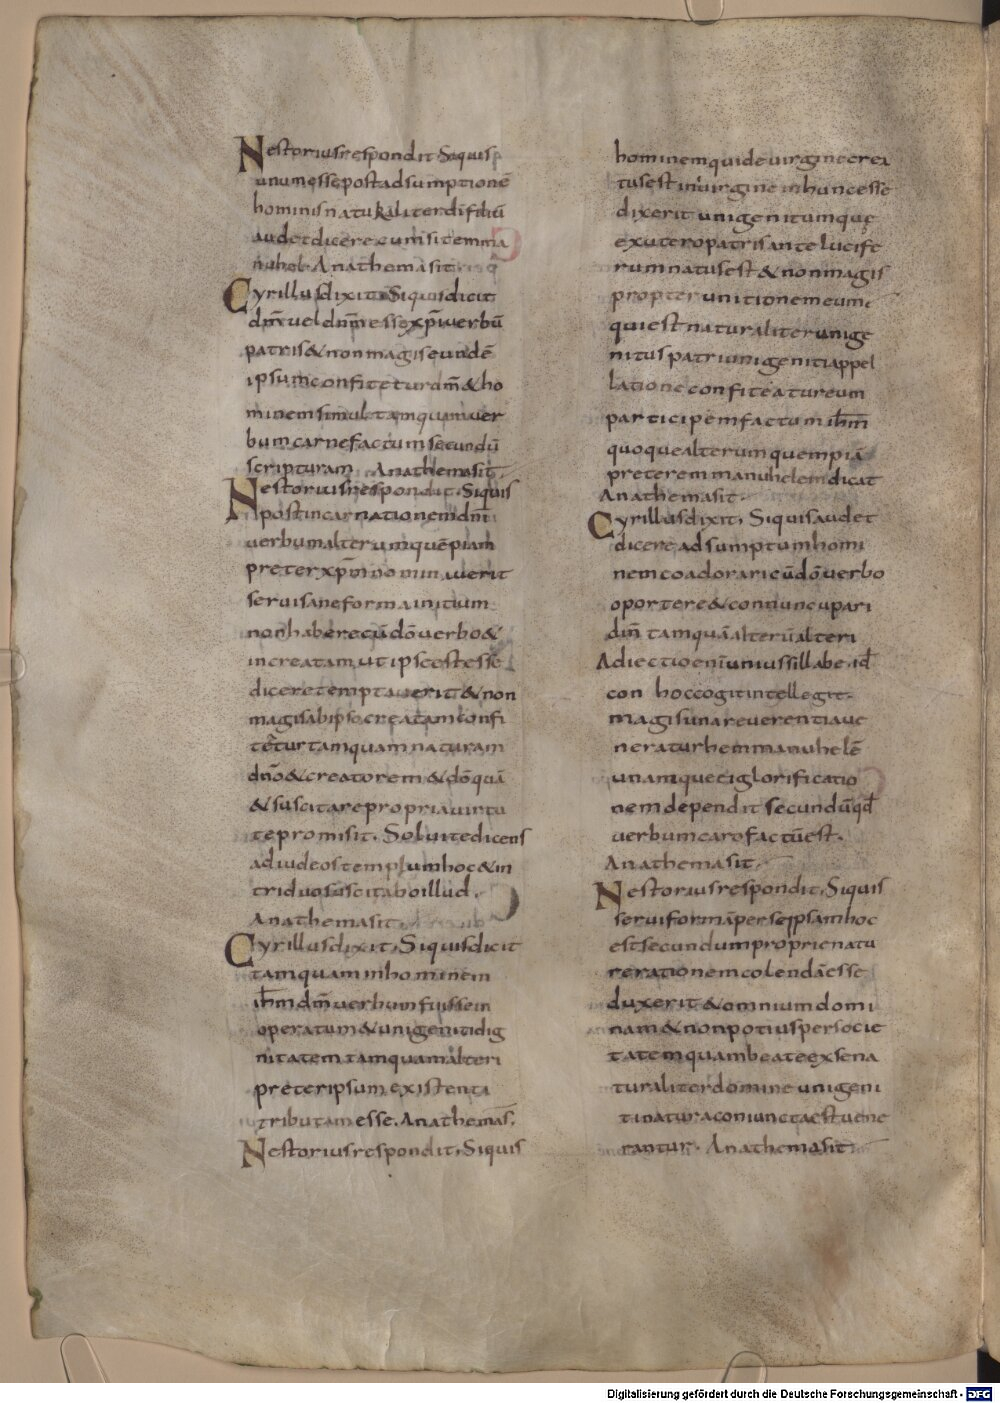 Nestorius respondit. Siquis p
unum esse post adsumptionē
hominis naturaliter dī filiū
audet dicere cum sit emma
nuhel. Anathema sit
Cyrillus dixit. Siquis dicit
dm̄ vel dn̄m esse xp̄i verbū
patris & non magis eundē
ipsum confitetur dm̄ & ho
minem simul tamquam ver
bum carne factum secundū
scripturam. Anathema sit.
Nestorius respondit. Siquis
post incarnationem dm̄
verbum alterum quēpiam
preter xp̄m nominaverit
servi sane forma initium
non habere cū dō verbo &
increatam ut ipse est esse
dicere temptaverit & non
magis ab ipso creatam confi
tetur tamquam naturam
dn̄o & creatorem & dō quā
& suscitare propria virtu
te promisit. Solvite dicens
ad iudeos templum hoc & in
triduo suscitabo illud.
Anathema sit.
Cyrillus dixit. Siquis dicit
tamquam in hominem
ih̄m dm̄ verbum fuisse in
operatum & unigeniti dig
nitatem tamquam alteri
preter ipsum existenti
tributam esse. Anathemas̄.
Nestorius respondit. Siquis
hominem qui de virgine crea
tus est in virgine in hunc esse
dixerit unigenitum que
ex utero patris ante lucife
rum natus est & non magis
propter unitionem eum
qui est naturaliter unige
nitus patri unigeniti appel
latione confiteatur eum
participem factum ih̄m
quoque alterum quempiā
preter emmanuhelem dicat
Anathema sit.
Cyrillus dixit. Siquis audet
dicere adsumptum homi
nem coadorari cū dō verbo
oportere & connuncupari
dm̄ tamquā alterū alteri
Adiectio enī unius sillabe .id
con hoc cogit intellegit.
magis una reverentia ve
neratur hemmanuhelē
unamque ei glorificatio
nem dependit secundū qđ
verbum caro factū est.
Anathema sit.
Nestorius respondit. Siquis
servi formā per se ipsam hoc
est secundum proprie natu
re rationem colendā esse
duxerit & omnium domi
nam & non potius per socie
tatem quam beate ex sena
turaliter domine unigeni
ti natura coniuncta est vene
rantur. Anathema sit
Digitalisierung gefördert durch die Deutsche Forschungsgemeinschaft - DFG